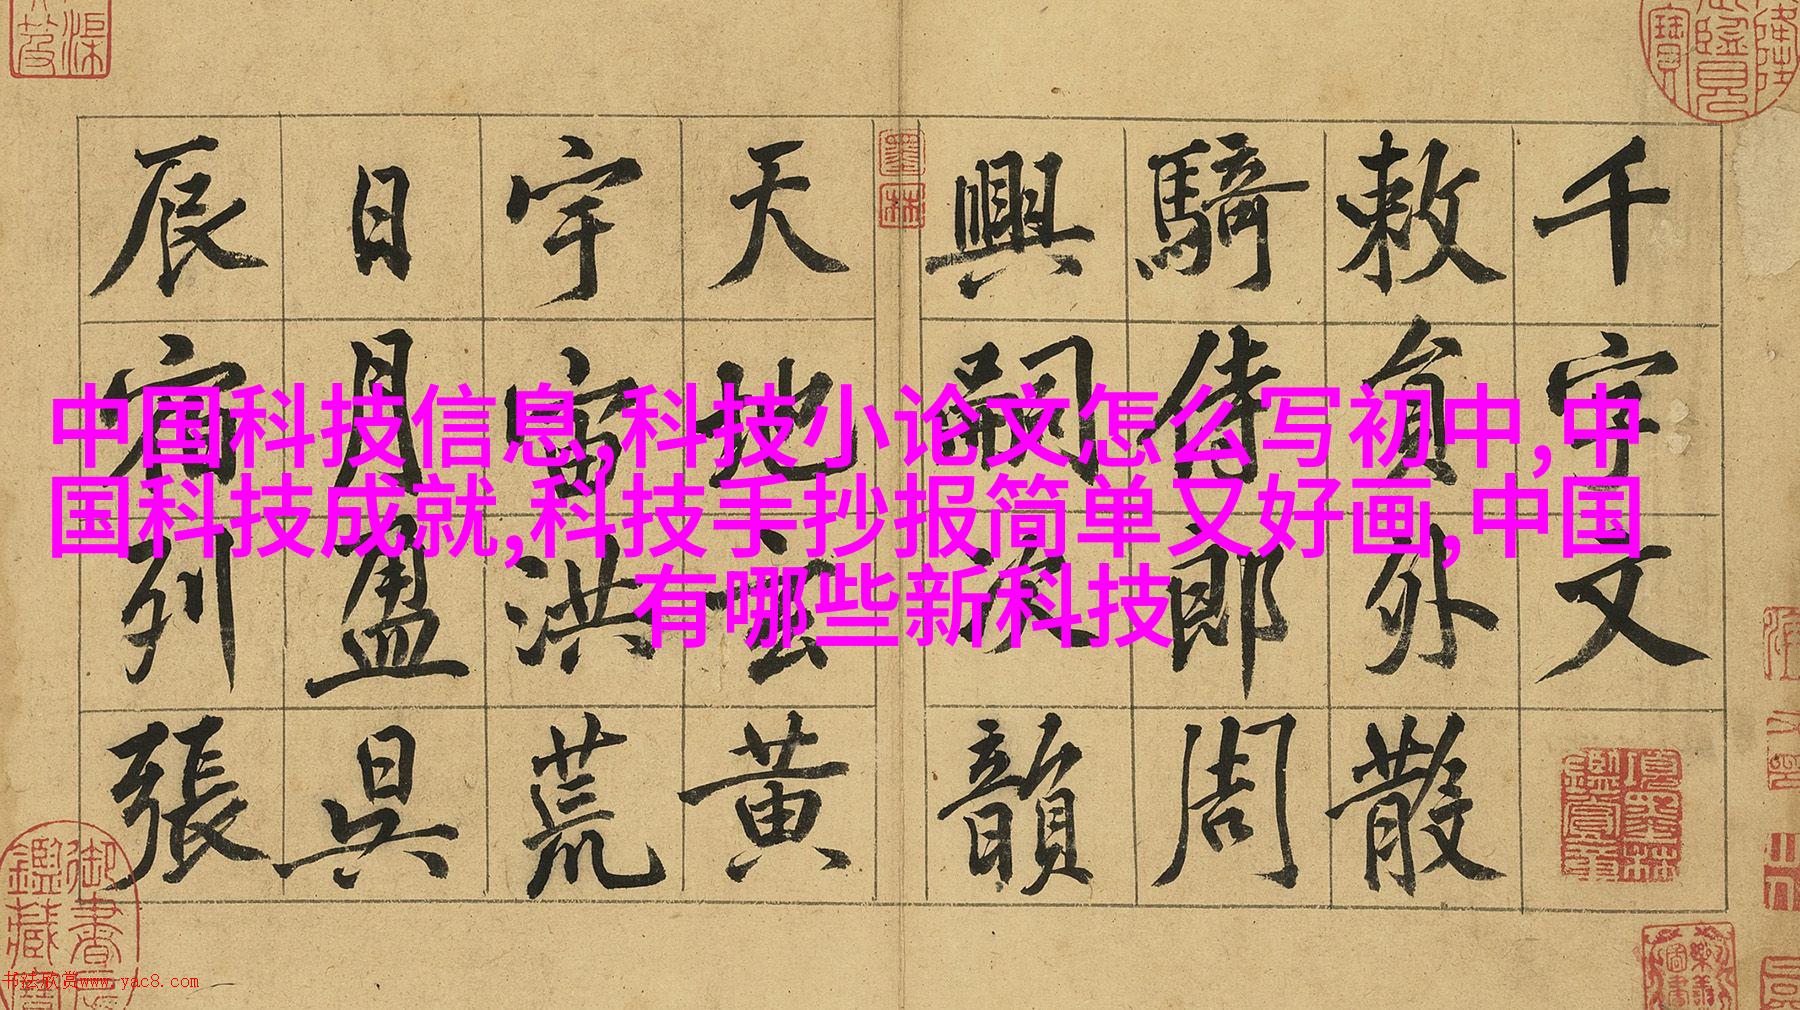 中国科技信息,科技小论文怎么写初中,中
国科技成就,科技手抄报简单又好画,中国
有哪些新科技
千字文
敕員外散
騎侍郎周
興嗣次韻
天地玄黃
宇宙洪荒
日月盈昃
辰宿列張
墨林
項墨林鑑賞章
书法欣赏www.yac8.com